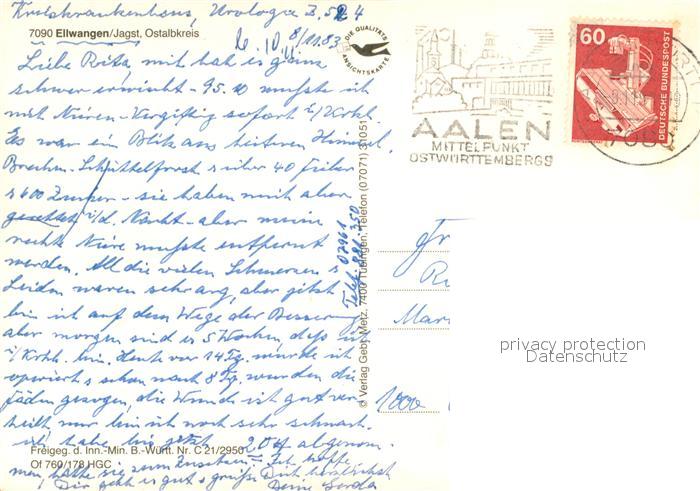 Kreiskrankenhaus, Urologie Z. 524
7090 Ellwangen/Jagst, Ostalbkreis
8/11.83
DIE QUALITÄTS
ANSICHTSKARTE
Liebe Rita, mich hat es ganz
schwer erwischt - 95.10 mußte ich
mit Nieren-Vergiftung sofort i/Krkh.
Es war ein Blitz aus heiterem Himmel,
Brechen - Schüttelfrost, über 40 Fieber
600 Zucker - sie haben mich aber
gerettet i/d. Nacht - aber meine
rechte Niere mußte entfernt
werden. All die vielen Schmerzen
Leiden waren sehr arg, aber jetzt
bin ich auf dem Wege der Besserung
aber morgen sind es 5 Wochen, daß ich
i/Krkh. bin. Heute vor 14 Tg. wurde ich
operiert, schon nach 8 Tg. wurden die
Fäden gezogen, die Wunde ist gut ver-
heilt nur bin ich noch sehr schwach.
ich habe bis jetzt 20 abgenom-
men, hatte sie zum Zusetzen - Ich hoffe
Dir geht es gut grüße Dich herzlichst
Deine Gerda
Freigeg. d. Inn.-Min. B.-Württ. Nr. C 21/2950
Of 760/178 HGC
© Verlag Gebr. Metz, 7400 Tübingen, Telefon (07071) 31051
Telef. 07961
881 350
AALEN
MITTELPUNKT
OSTWÜRTTEMBERGS
60
DEUTSCHE BUNDESPOST
Fr
Ri
Mar
1000
privacy protection
Datenschutz